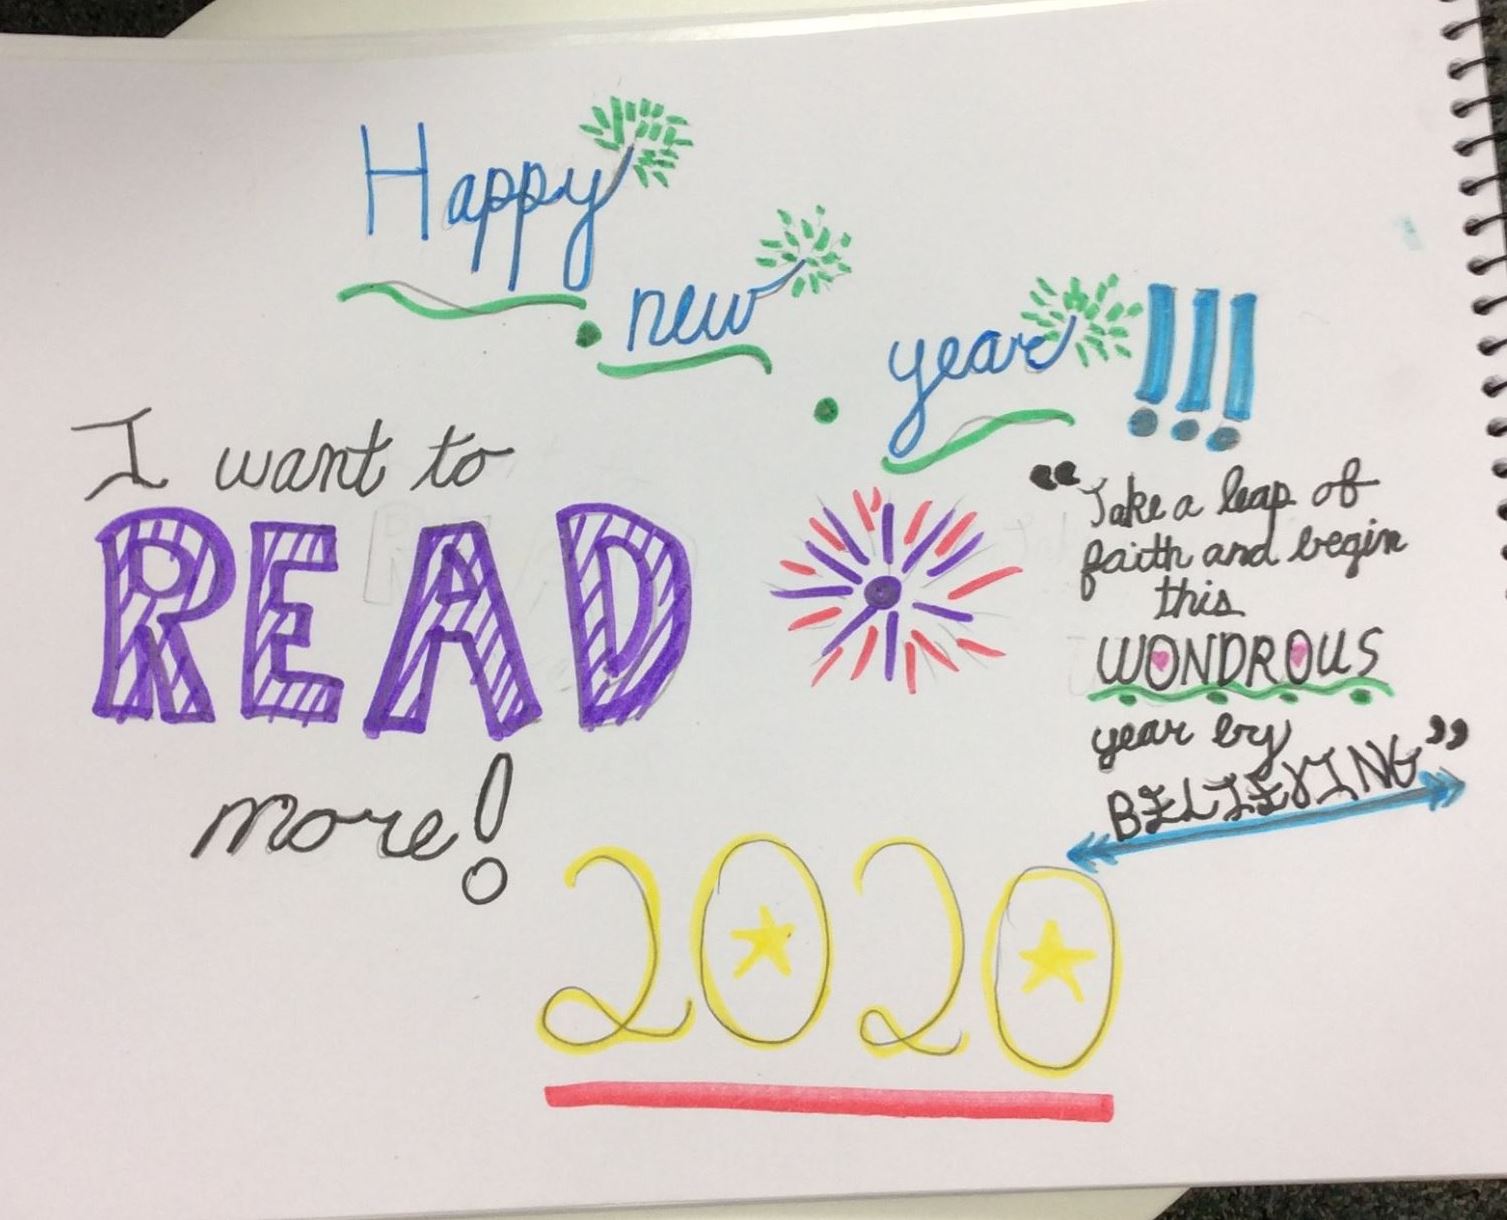 Happy
new
year!!!
I want to
READ
more!
“Take a leap of
faith and begin
this
WONDROUS
year by
BELIEVING”
2020